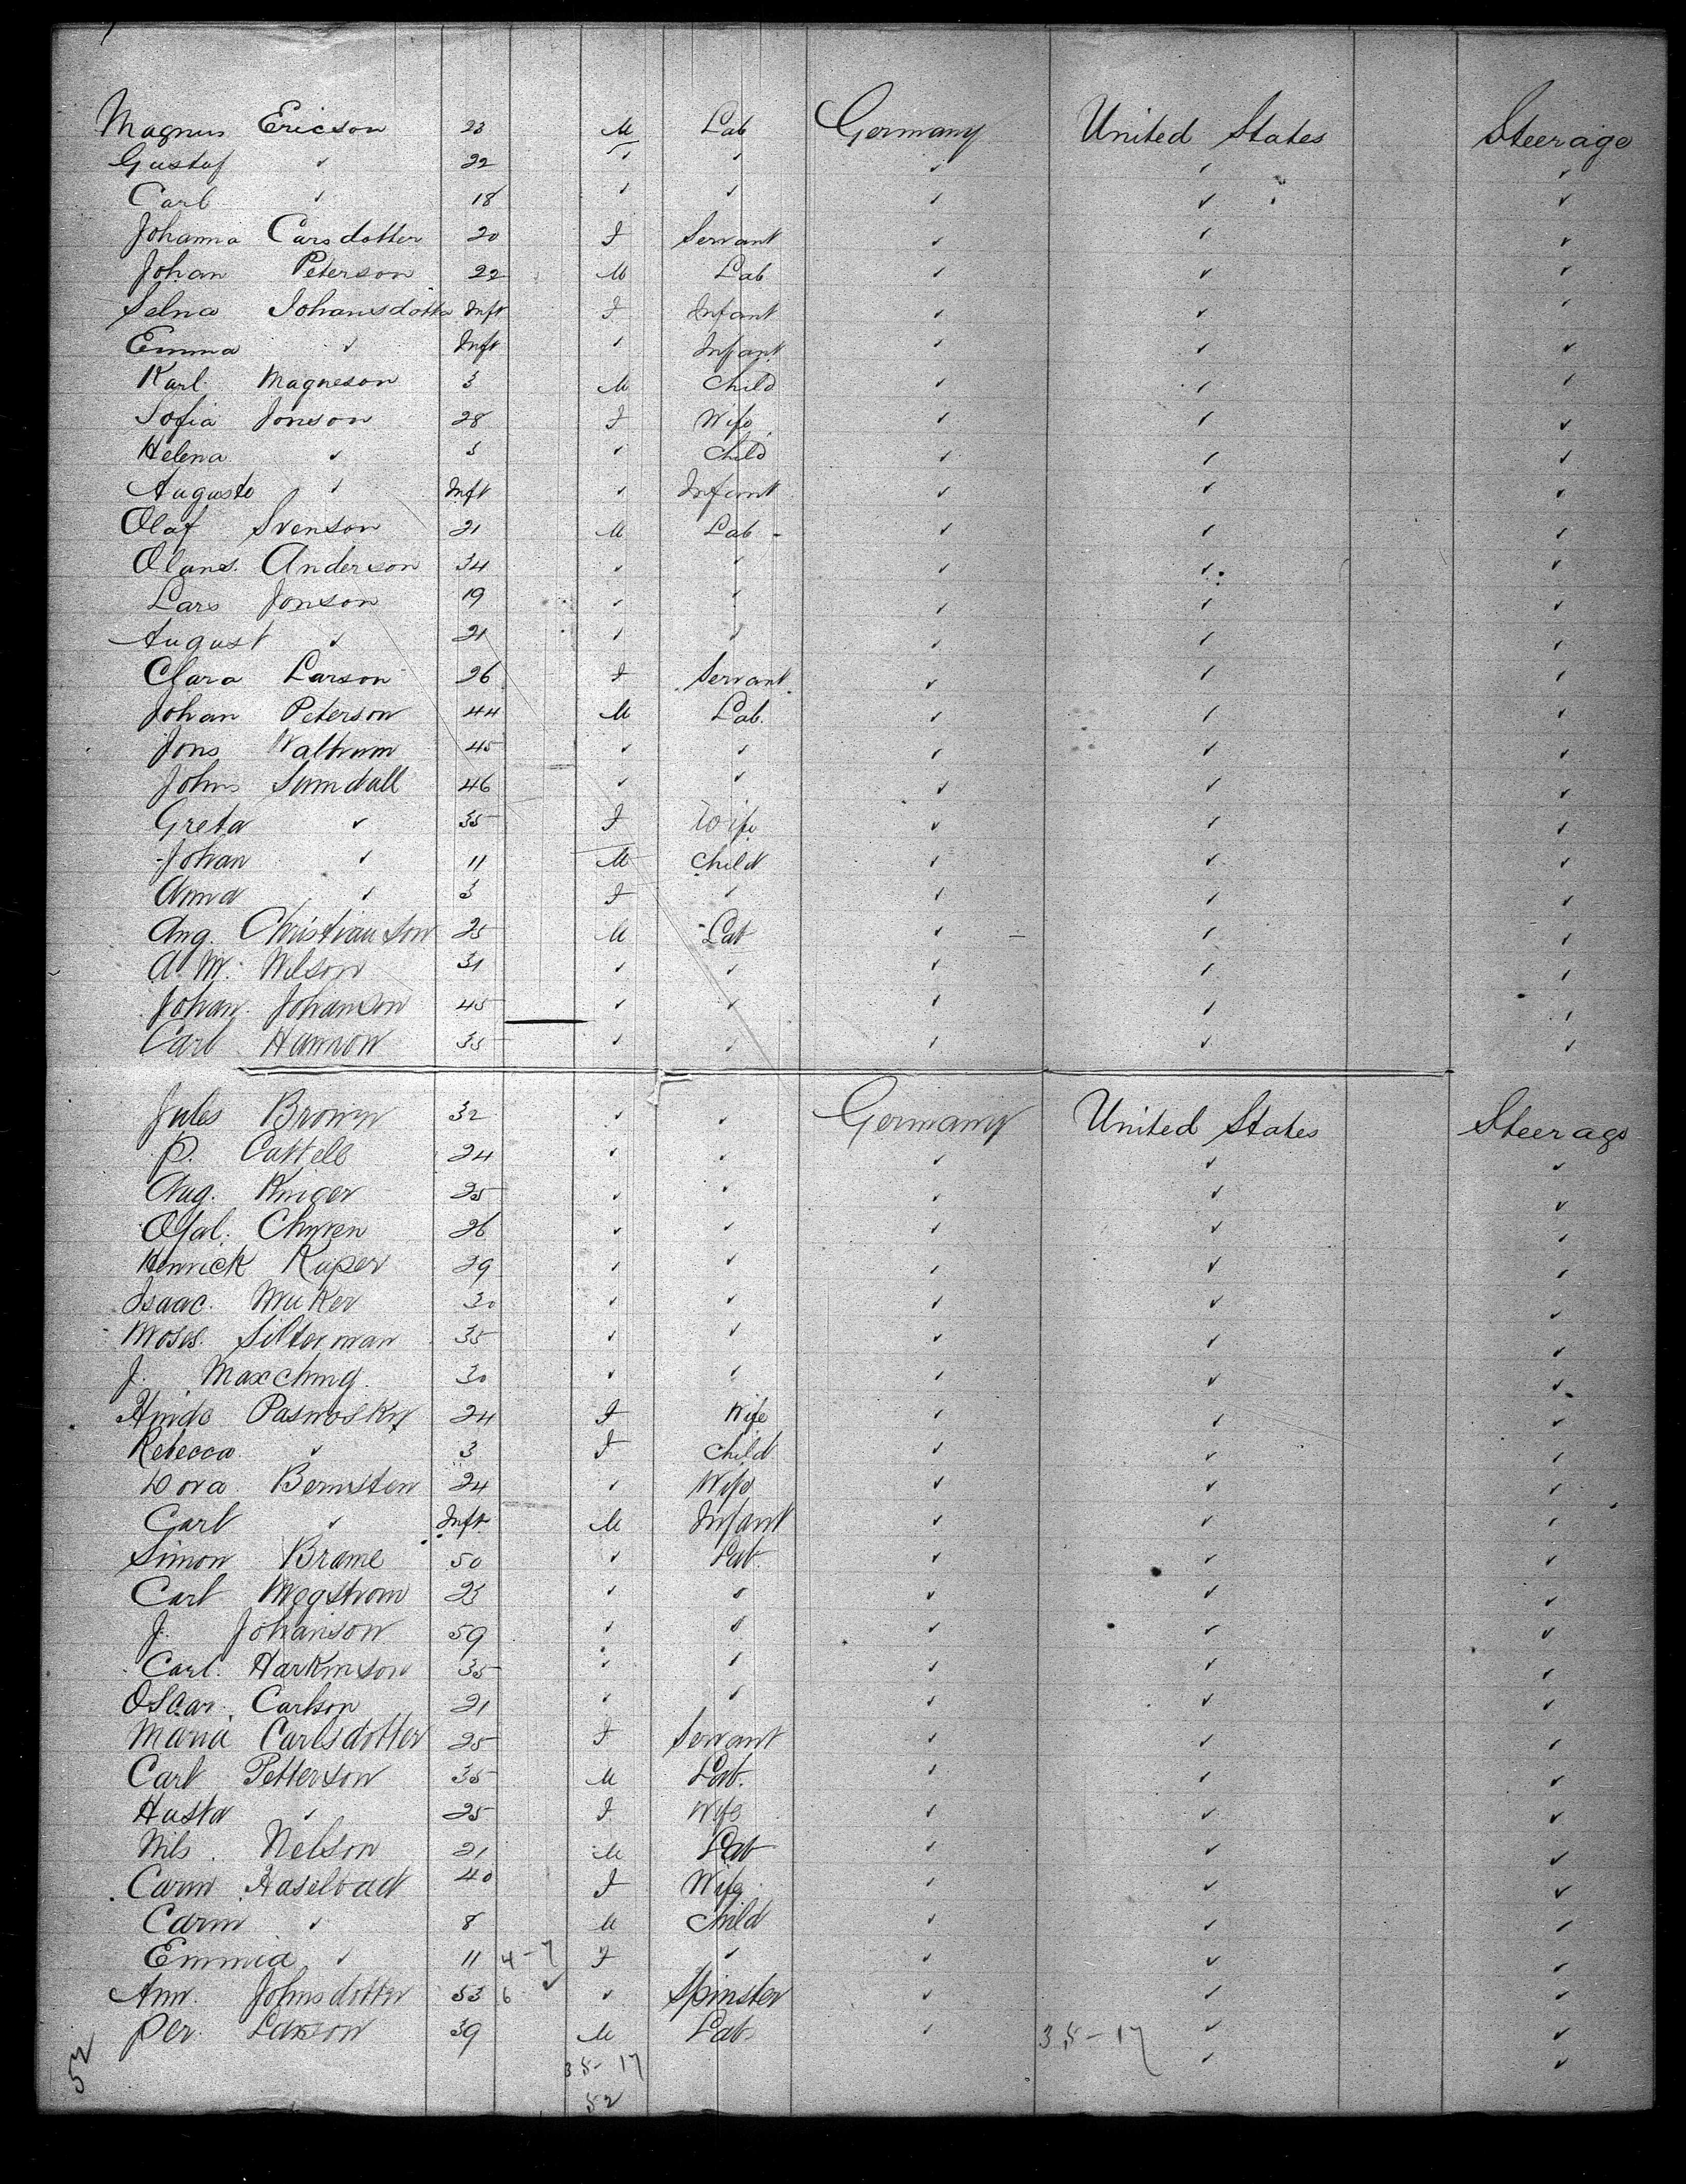 Magnus Ericson 23 M Lab Germany United States Steerage
Gustaf " 22 " " " " "
Carl " 18 " " " " "
Johanna Carsdotter 20 F Servant " " "
Johan Peterson 22 M Lab " " "
Selna Johansdotter Inft F Infant " " "
Emma " Inft " Infant " " "
Karl Magneson 3 M Child " " "
Sofia Jonson 28 F Wife " " "
Helena " 3 " Child " " "
Auguste " Inft " Infant " " "
Olaf Svenson 21 M Lab " " "
Olans. Anderson 34 " " " " "
Lars Jonson 19 " " " " "
August " 21 " " " " "
Clara Larson 26 F Servant " " "
Johan Peterson 44 M Lab. " " "
Jons 45 " " " " "
Johns Sundall 46 " " " " "
Greta " 35 F Wife " " "
Johan " 11 M Child " " "
Anna " 3 F " " " "
Aug. Christianson 25 M Lab " " "
A. M. Nilson 31 " " " " "
Johan Johanson 45 " " " " "
Carl 35 " " " " "
Jules Brown 32 " " Germany United States Steerage
P. Cattell 24 " " " " "
Aug. 25 " " " " "
26 " " " " "
Henrick Kaper 29 " " " " "
Isaac. 30 " " " " "
Moses. Silterman 35 " " " " "
J. 30 " " " " "
Hinde Pasmosky 24 F Wife " " "
Rebecca " 3 F Child " " "
Dora Bernsten 24 " Wife " " "
Carl " Inft M Infant " " "
Simon Brame 50 " Lab. " " "
Carl Wegstrom 23 " " " " "
J. Johanson 59 " " " " "
Carl. Harkinson 35 " " " " "
Oscar. Carlson 21 " " " " "
Maria Carlsdotter 25 F Servant " " "
Carl Petterson 35 M Lab. " " "
Husta " 25 F Wife " " "
Nils. Nelson 21 M Lab " " "
Carin Haselbad 40 F Wife " " "
Carin " 8 M Child " " "
Emmia " 11 4-7 F " " " "
Ann. Johnsdotter 53 6 " Spinster " " "
Per. Larson 39 M Lab. " 35-17 " "
52 35-17 " "
52